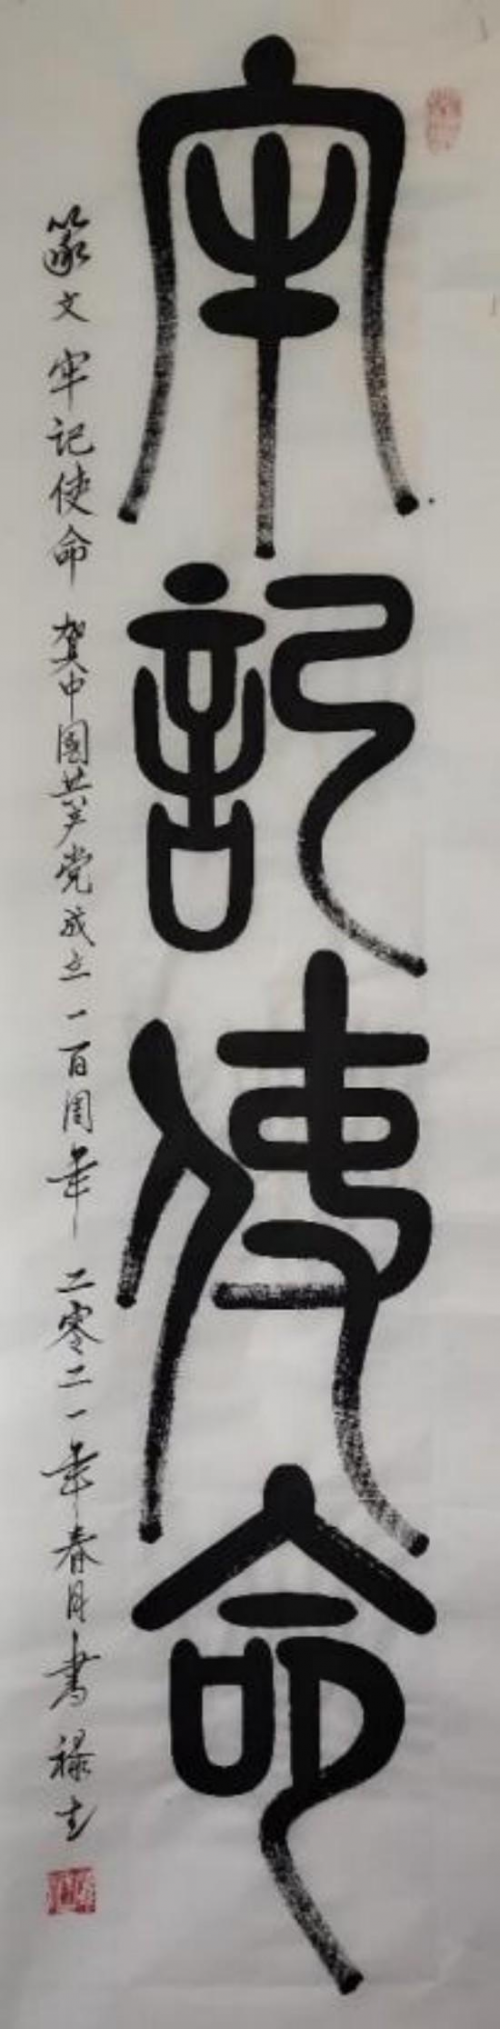 牢記使命
篆文 牢记使命 贺中国共产党成立一百周年 二零二一年春月书 禄吉